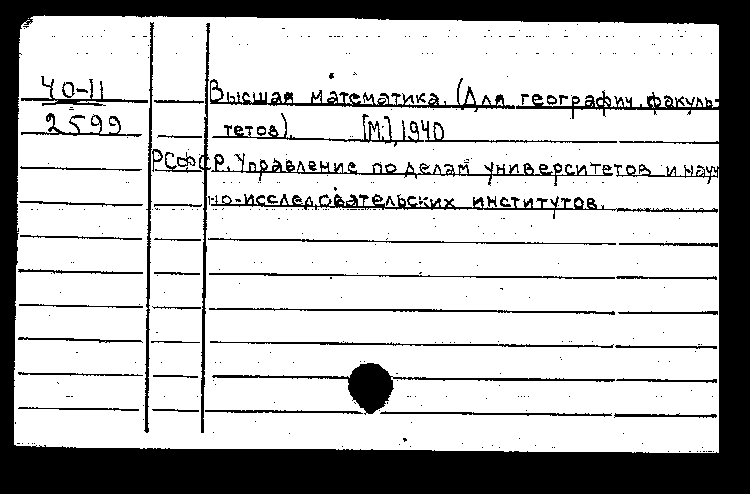 40-11
2599
Высшая математика. (Для географич. факуль-
тетов). [М.], 1940
РСФСР. Управление по делам университетов и науч
но-исследовательских институтов.